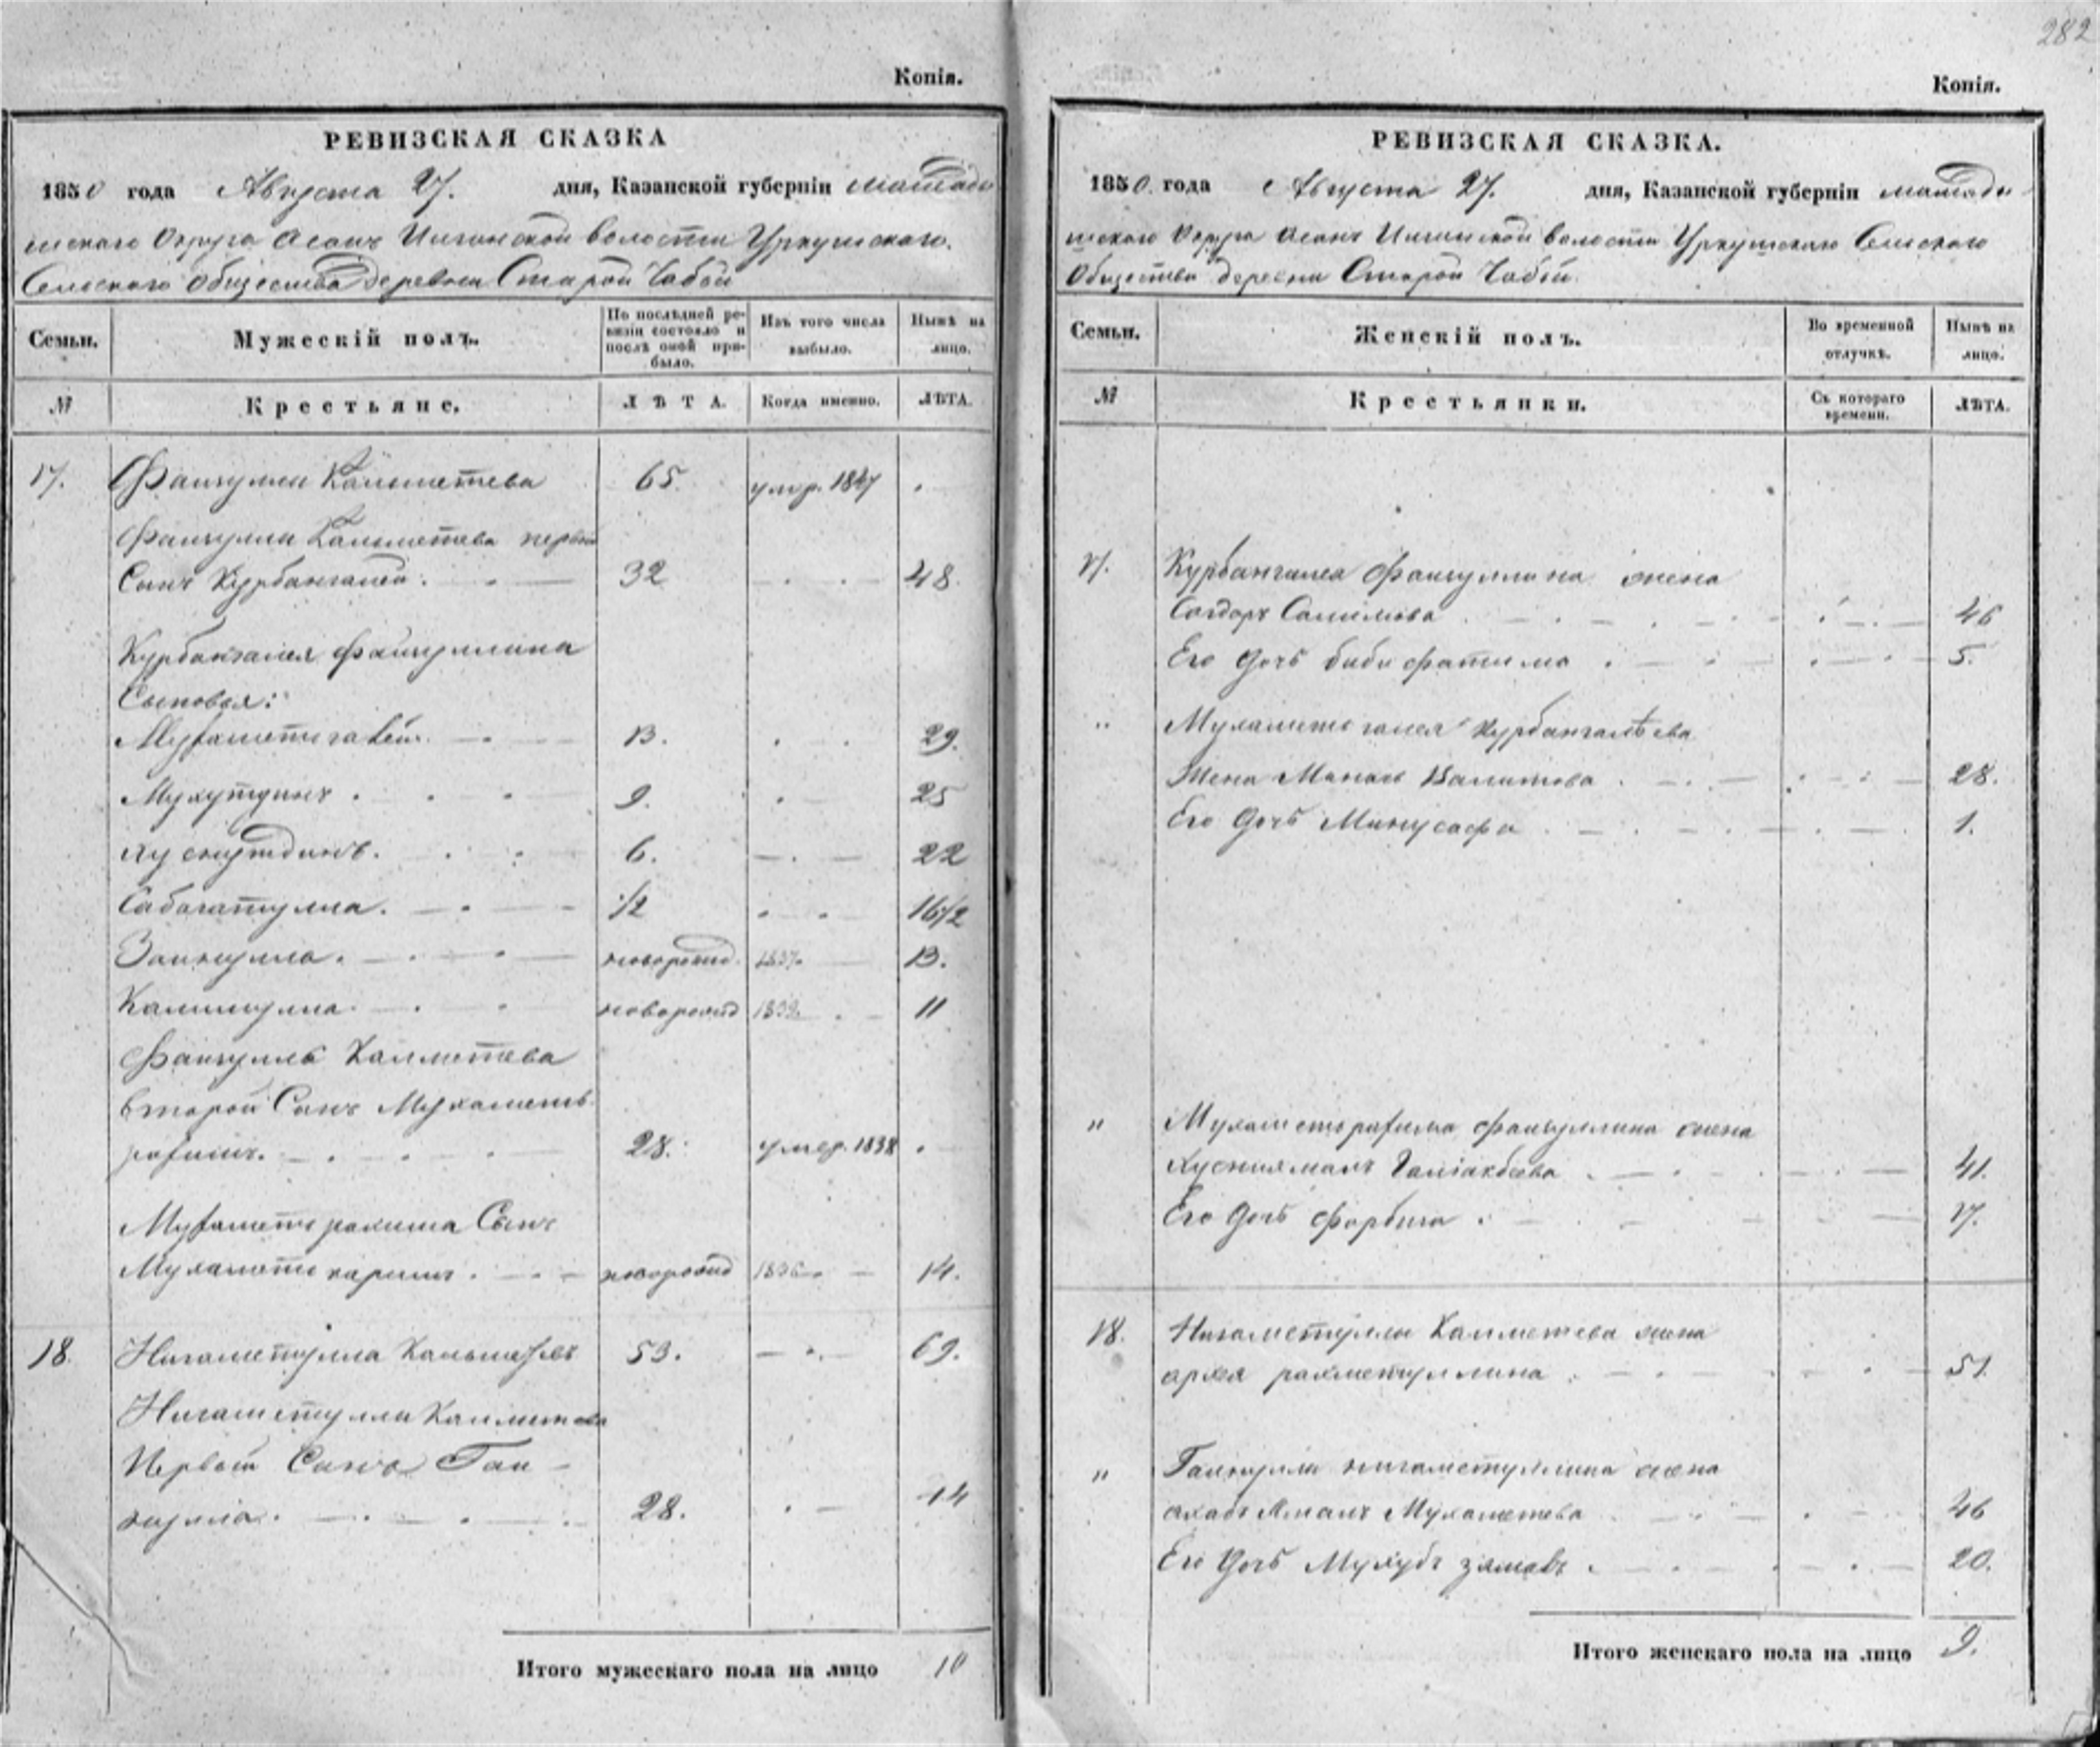 282
Копія.
РЕВИЗСКАЯ СКАЗКА
1850 года Августа 27. дня, Казанской губерніи Мамады-
шскаго Округа Асанъ Илгинской волости Уркушскаго
Сельскаго Общества деревни Старой Чабьи
Семьи. Мужескій полъ. По послѣдней ре-
визіи состояло и
послѣ оной при-
было. Изъ того числа
выбыло. Нынѣ на
лицо.
№ Крестьяне. ЛѢТА. Когда именно. ЛѢТА.
17. Фаизулла Калметева 65. умр. 1847
Фаизуллы Калметева первый
Сынъ Курбангалей. 32 48.
Курбангалея Фаизуллина
Сыновья:
Мухаметгалей. 13. 29.
Мухутдинъ. 9. 25
Хуснутдинъ. 6. 22
Сабагатулла. 1/2 16 1/2
Заинулла. новорожд. 1837. 13.
Калимулла. новорожд 1839. 11
Фаизуллы Калметева
второй Сынъ Мухаметъ
рахимъ. 28. умер. 1838
Мухаметрахима Сынъ
Мухаметкаримъ. новорожд 1836 14.
18. Нигаметулла Кальметевъ 53. 69.
Нигаметуллы Калметева
Первый Сынъ Гаи-
нулла. 28. 44
Итого мужескаго пола на лицо 10
Копія.
РЕВИЗСКАЯ СКАЗКА.
1850. года Августа 27. дня, Казанской губерніи Мамады-
шскаго Округа Асанъ Илгинской волости Уркушскаго Сельскаго
Общества деревни Старой Чабьи.
Семьи. Женскій полъ. Во временной
отлучкѣ. Нынѣ на
лицо.
№ Крестьянки. Съ котораго
времени. ЛѢТА.
17. Курбангалея Фаизуллина жена
Салимова 46
Его дочь Биби Фатима 5.
" Мухаметгалея Курбангалѣева
жена Валитова 28.
Его дочь Минусафа 1.
" Мухаметрахима Фаизуллина жена
Хусниямалъ 41.
Его дочь 17.
18. Нигаметуллы Калметева жена
рахметуллина 51.
" Гаинуллы Нигаметуллина жена
Мухаметева 46
Его дочь 20.
Итого женскаго пола на лицо 9.